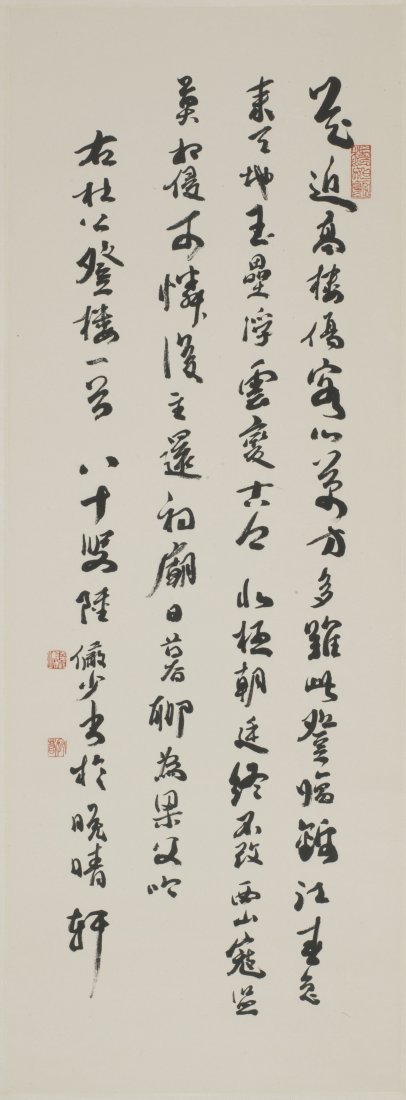 花近高樓傷客心萬方多難此登臨錦江春色
來天地玉壘浮雲變古今北極朝廷終不改西山寇盜
莫相侵可憐後主還祠廟日暮聊為梁父吟
右杜公登樓一首 八十叟陸儼少書於晚晴軒